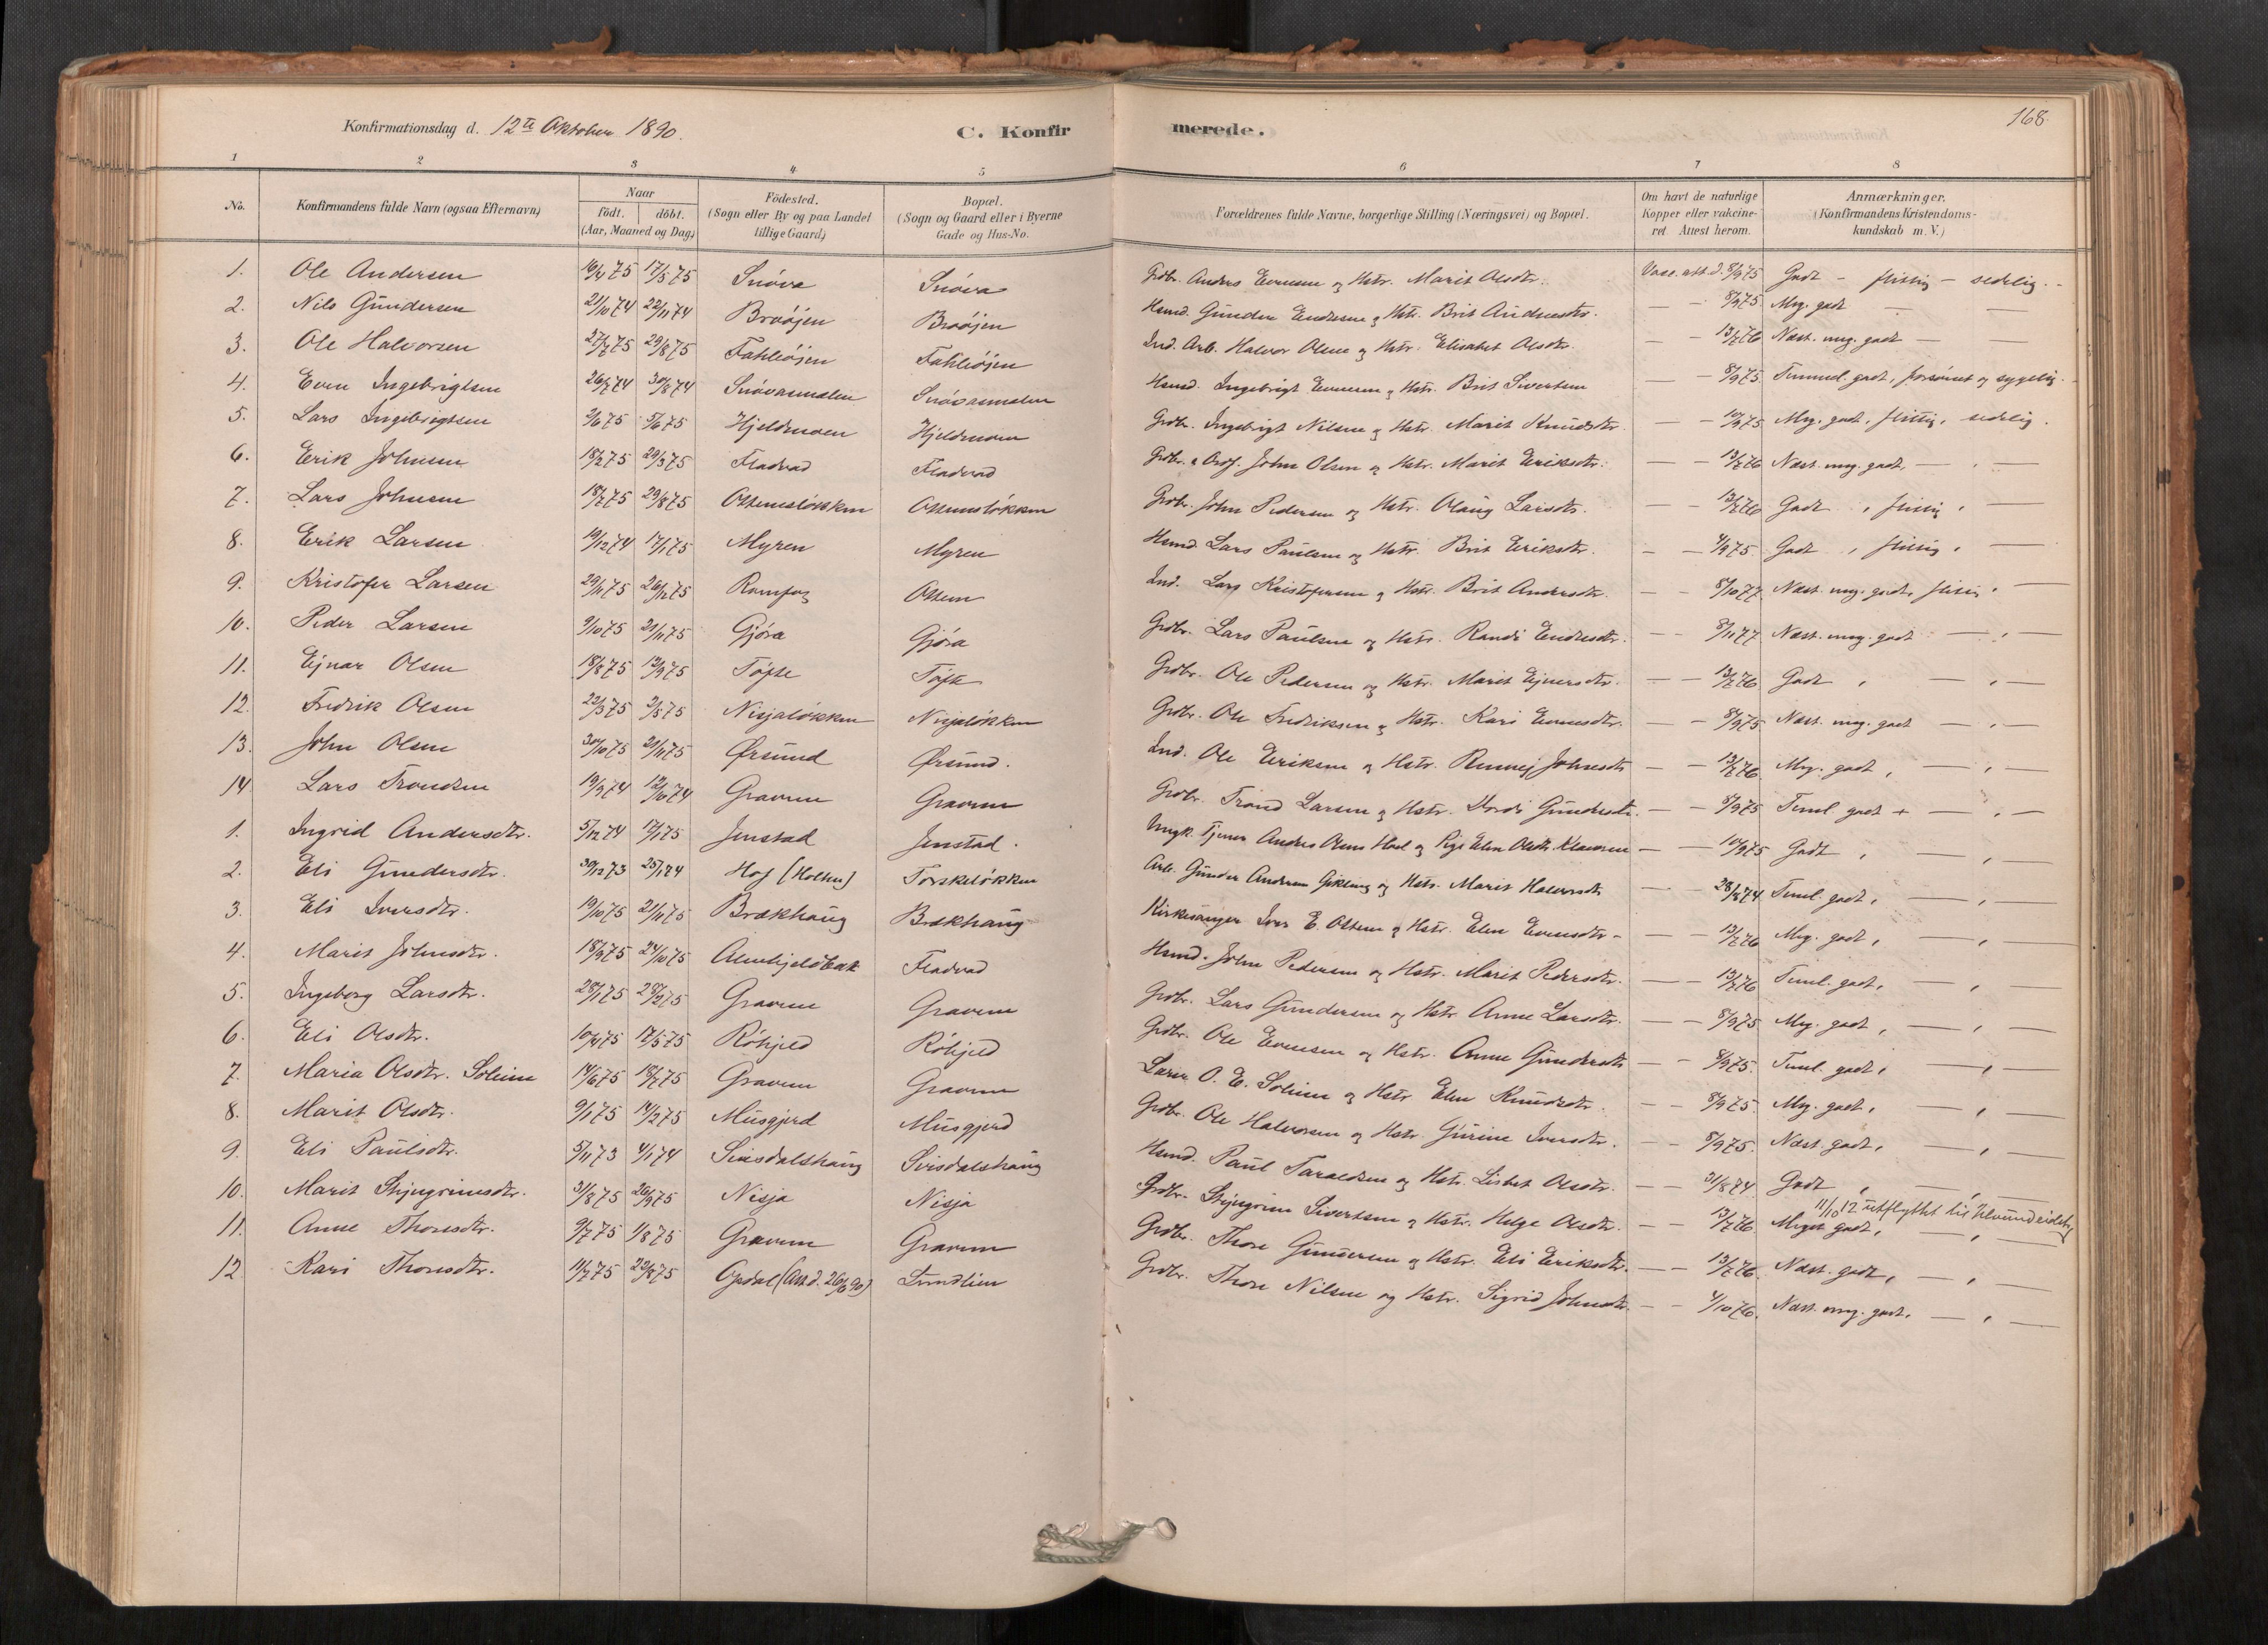 Konfirmationsdag d. 12te Oktober 1890. C. Konfirmerede. 168.
1 2 3 4 5 6 7 8
No. Konfirmandens fulde Navn (ogsaa Efternavn) Naar födt. döbt. (Aar, Maaned og Dag) Födested. (Sogn eller By og paa Landet tillige Gaard) Bopæl. (Sogn og Gaard eller i Byerne Gade og Hus-No. Forældrenes fulde Navne, borgerlige Stilling (Næringsvei) og Bopæl. Om havt de naturlige Kopper eller vakcineret. Attest herom. Anmærkninger. (Konfirmandens Kristendomskundskab m. V.)
1. Ole Andersen 16/4 75 17/5 75 Snöva Snöva Grdbr. Anders Evensen og Hstr. Marit Olsdtr. Vacc. att. d. 8/9 75 Godt – flittig – sedelig. –
2. Nils Gundersen 21/10 74 22/11 74 Braöjen Braöjen Hsmd. Gunder Endresen og Hstr. Brit Andersdtr. — – 8/9 75. Mg. godt — —
3. Ole Halvorsen 27/7 75 29/8 75 Fahleöjen Fahleöjen Ind. Arb. Halvor Olsen og Hstr. Elisabet Olsdtr. — – 13/7 76 Næst. mg. godt — —
4. Even Ingebrigtsen 26/7 74 30/8 74 Snövasmelen Snövasmelen Hsmd. Ingebrigt Evensen og Hstr. Brit Sivertsen — – 8/9 75. Temmel. godt, forsömt og sygelig.
5. Lars Ingebrigtsen 3/6 75 5/6 75 Hjeldmoen Hjeldmoen Grdbr. Ingebrigt Nilsen og Hstr. Marit Knudsdtr. — – 10/9 75 Mg. godt, flittig, sedelig.
6. Erik Johnsen 18/2 75 29/3 75 Fladvad Fladvad Grdbr. & Ordf. John Olsen og Hstr. Marit Eriksdtr. — – 13/7 76 Næst. mg. godt, — , —
7. Lars Johnsen 18/7 75 29/8 75 Ottemslökken Ottemslökken Grdbr. John Pedersen og Hstr. Olaug Larsdtr. — – 13/7 76 Godt , flittig , —
8. Erik Larsen 19/12 74 17/1 75 Myren Myren Hsmd. Lars Paulsen og Hstr. Brit Eriksdtr. — – 4/9 75. Godt , flittig , —
9. Kristofer Larsen 29/11 75 26/12 75 Romfog Ottem Ind. Lars Kristofersen og Hstr. Brit Andersdtr. — – 8/10 77. Næst. mg. godt, flittig , —
10. Peder Larsen 9/10 75 21/11 75 Gjöra Gjöra Grdbr. Lars Paulsen og Hstr. Randi Endresdtr. — – 8/11 77. Næst. mg. godt — , —
11. Ejnar Olsen 18/8 75 12/9 75 Töfte Töfte Grdbr. Ole Pedersen og Hstr. Marit Ejnarsdtr. — – 13/7 76 Godt , — , —
12. Fredrik Olsen 22/3 75 2/5 75 Nisjalökken Nisjalökken Grdbr. Ole Fredriksen og Hstr. Kari Evensdtr. — – 8/9 75. Næst. mg. godt — , —
13. John Olsen 30/10 75 21/11 75 Ørsund Ørsund. Ind. Ole Eriksen og Hstr. Rennej Johnsdtr. — – 13/7 76. Mg. godt , — , —
14 Lars Trondsen 19/9 74 12/10 74 Gravem Gravem Grdbr. Trond Larsen og Hstr. Gundersdtr. — – 8/9 75 Teml. godt + — , —
1. Ingrid Andersdtr. 5/12 74 17/1 75 Jenstad Jenstad. Ungk. Tjener Anders Olsen Hoel og Pige Elen Olsdtr. — – 10/9 75 Godt , — , —
2. Eli Gundersdtr. 30/12 73 25/1 74 Hof (Holten) Torskelökken Arb. Gunder Andersen Gikling og Hstr. Marit Halvorsdtr. — – 28/8 74 Teml. godt , — , —
3. Eli Iversdtr. 19/10 75 21/11 75 Brækhaug Brækhaug Kirkesanger Iver E. Ottem og Hstr. Elen Evensdtr. – — – 13/7 76 Mg. godt , — , —
4. Marit Johnsdtr. 18/9 75 24/10 75 Almskjeldbak Fladvad Hsmd. John Pedersen og Hstr. Marit Pedersdtr. — – 13/7 76 Teml. godt, — , —
5. Ingeborg Larsdtr. 28/1 75 28/2 75 Gravem Gravem Grdbr. Lars Gundersen og Hstr. Anne Larsdtr. — – 8/9 75. Mg. godt , — , —
6. Eli Olsdtr. 10/4 75 17/5 75 Röhjeld Röhjeld Grdbr. Ole Evensen og Hstr. Anne Gundersdtr. — – 8/9 75. Teml. godt , — , —
7. Maria Olsdtr. Solem 14/6 75 18/7 75 Gravem Gravem Lærer O. E. Solem og Hstr. Elen Knudsdtr. — – 8/9 75. Mg. godt , — , —
8. Marit Olsdtr. 9/1 75 14/2 75 Musgjerd Musgjerd Grdbr. Ole Halvorsen og Hstr. Gurine Iversdtr. — – 8/9 75. Næst. godt, — , —
9. Eli Paulsdtr. 5/11 73 4/1 74 Svisdalshaug Svisdalshaug Hsmd. Paul Taraldsen og Hstr. Lisbet Olsdtr. — – 31/8 74. Godt , — , —
11/10 12 utflyttet til
10. Marit Stejngrimsdtr. 31/8 75 26/9 75 Nisja Nisja Grdbr. Stejngrim Sivertsen og Hstr. Helge Olsdtr. — – 13/7 76. Meget godt, — , —
11. Anne Thoresdtr. 9/7 75 1/8 75 Gravem Gravem Grdbr. Thore Gundersen og Hstr. Eli Eriksdtr. — – 13/7 76. Næst. godt , — , —
12. Kari Thoresdtr. 11/7 75 22/8 75 Opdal (Att. d. 26/6 90) Lundlien Grdbr. Thore Nilsen og Hstr. Sigrid Johnsdtr. — – 4/10 76. Næst. mg. godt. — , —